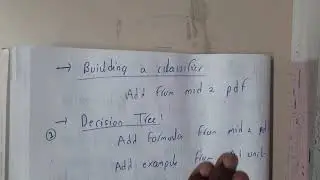 → Building a classifier
Add from mid 2 pdf
→ Decision Tree:
② Add formula from mid 2
Add example from